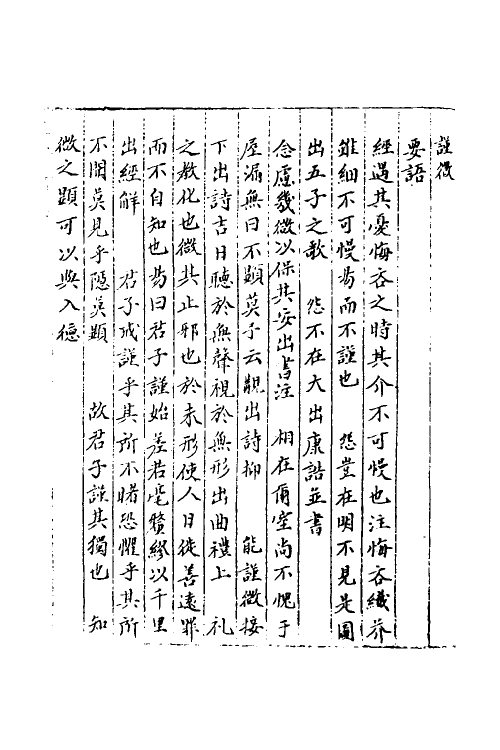 謹微
要語
經遇其憂悔吝之時其介不可慢也注悔吝纖芥
雖細不可慢易而不謹也　怨豈在明不見是圖
出五子之歌　怨不在大出康誥並書
念慮幾微以保其安出書注　相在爾室尚不愧于
屋漏無曰不顯莫予云覯出詩抑　能謹微接
下出詩吉日聽於無聲視於無形出曲禮上　礼
之教化也微其止邪也於未形使人日徙善遠罪
而不自知也易曰君子謹始差若毫釐繆以千里
出經解　君子戒謹乎其所不睹恐懼乎其所
不聞莫見乎隱莫顯　故君子謹其獨也　知
微之顯可以與入德